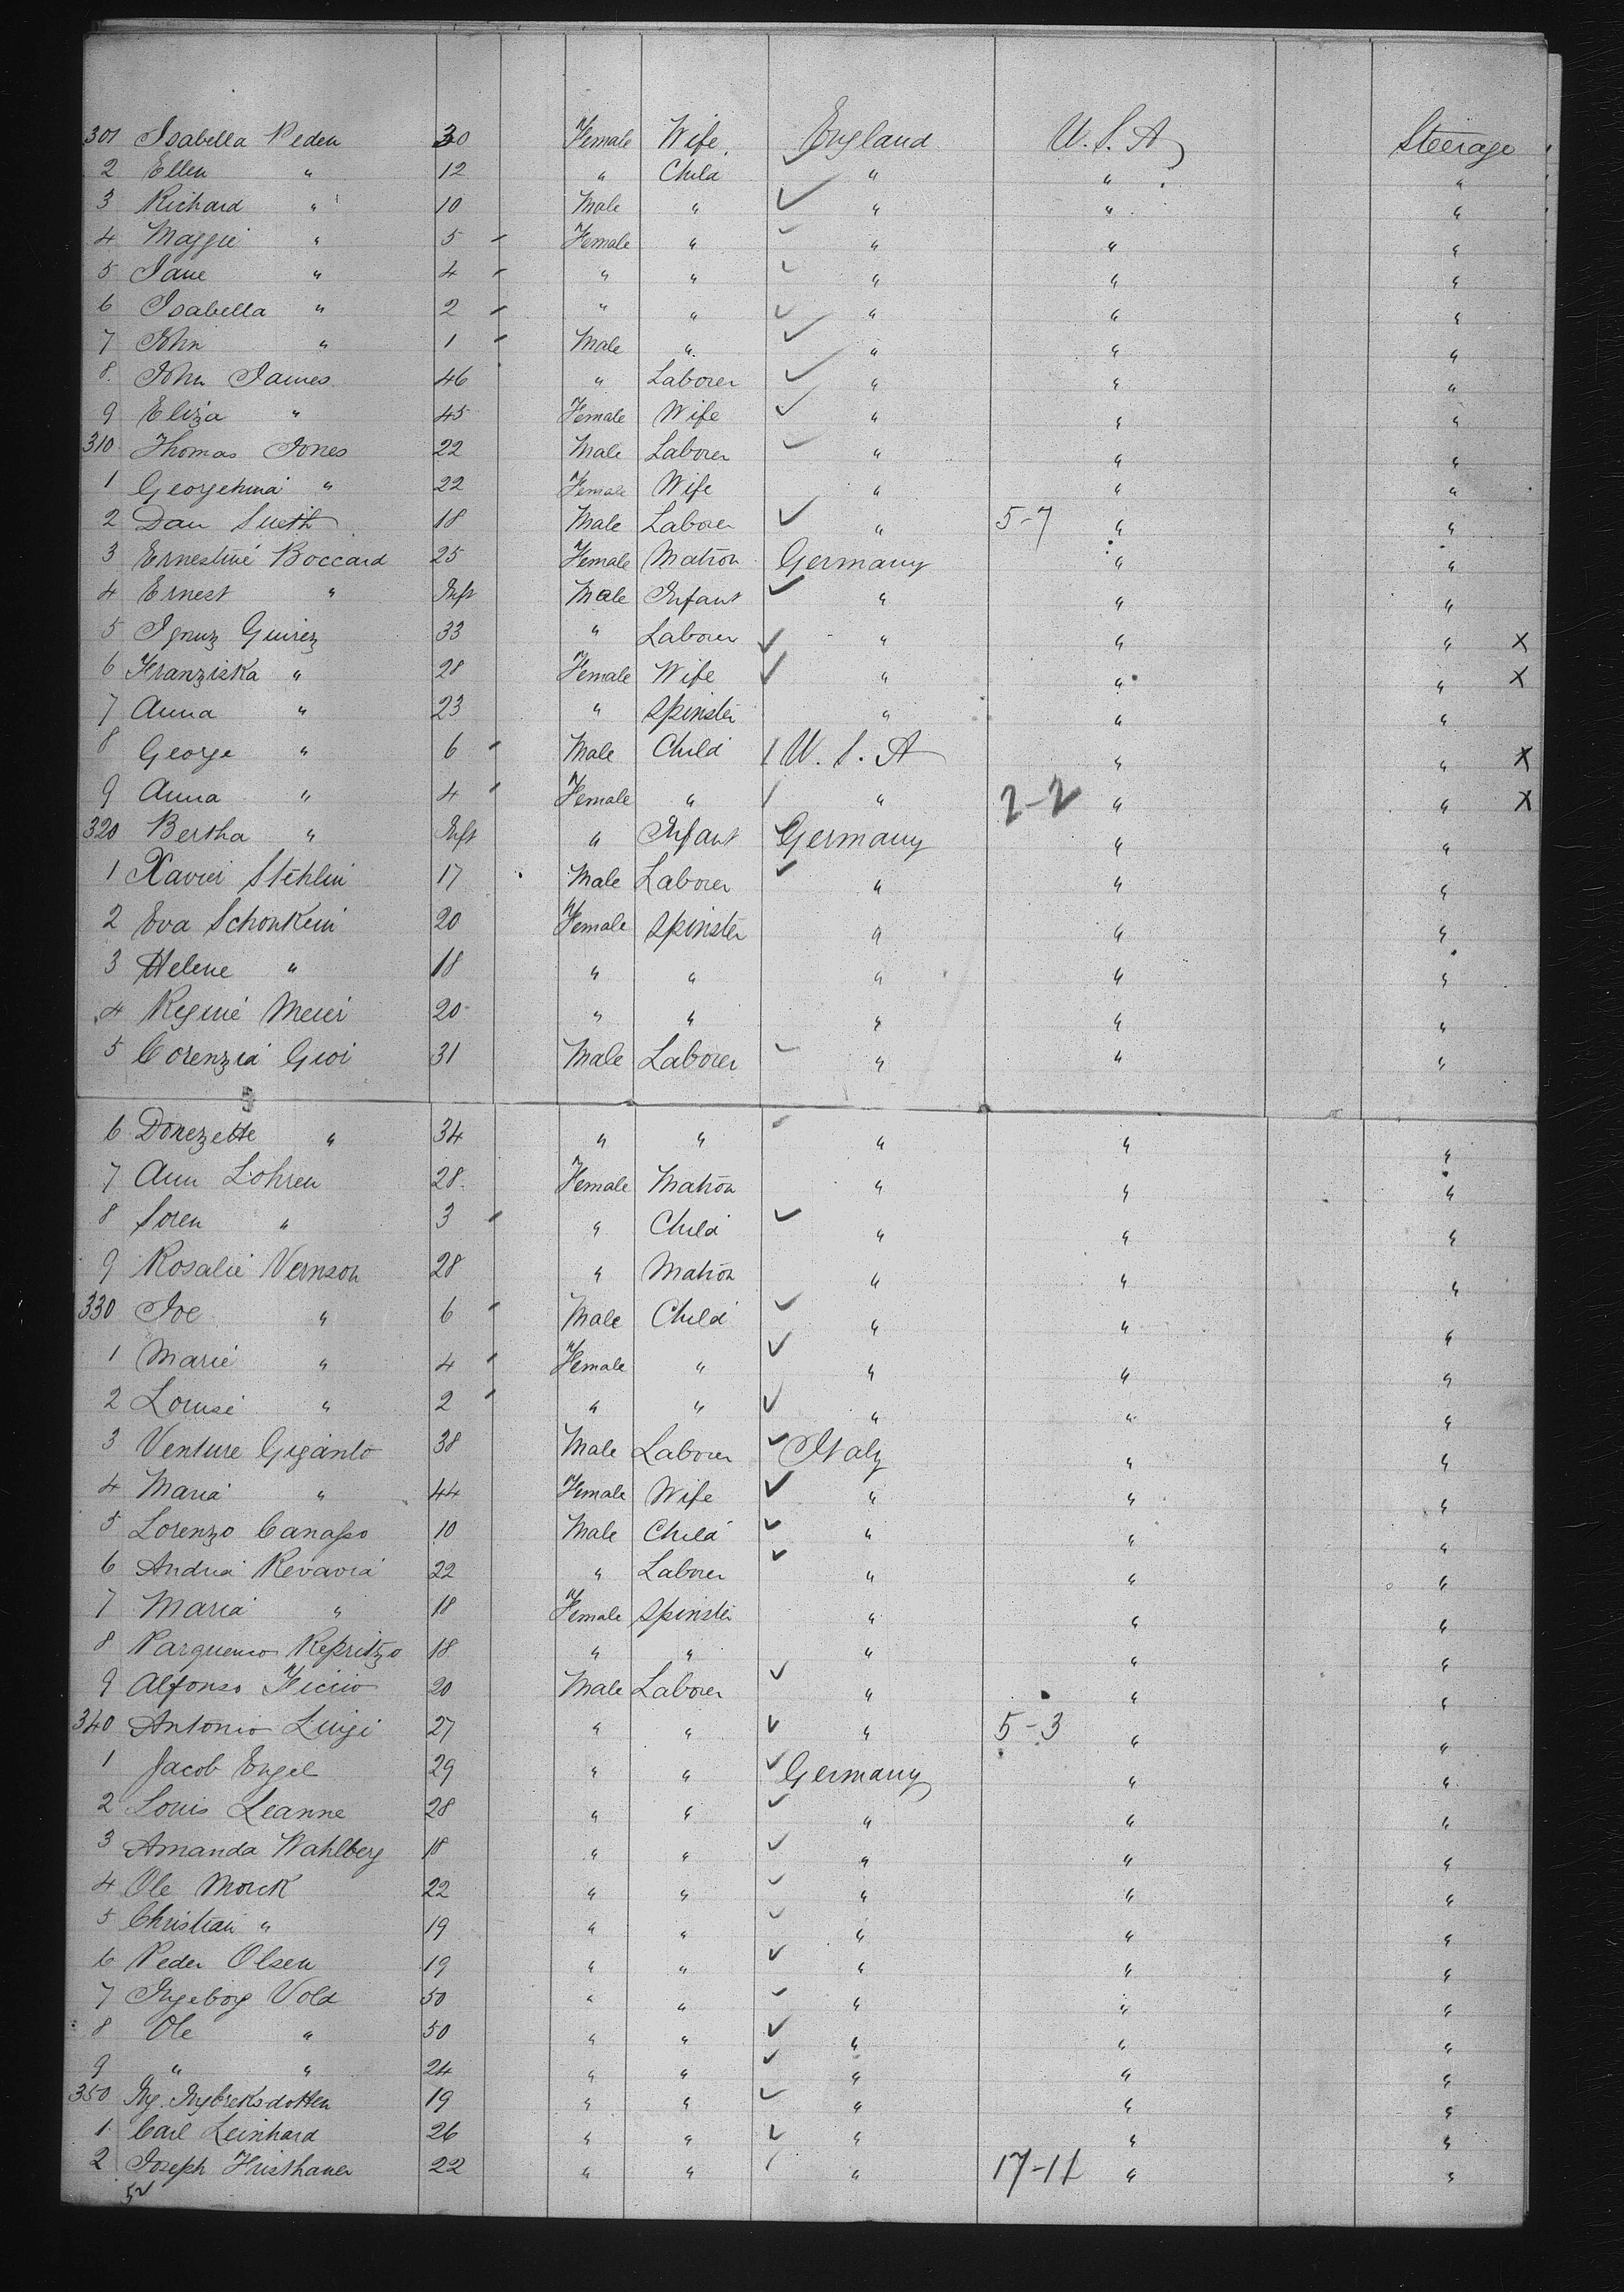 301 Isabella Peden 30 Female Wife England U.S.A Steerage
2 Ellen " 12 " Child " " "
3 Richard " 10 Male " " " "
4 Maggie " 5 - Female " " " "
5 Jane " 4 - " " " " "
6 Isabella " 2 - " " " " "
7 John " 1 - Male " " " "
8 John James 46 " Laborer " " "
9 Eliza " 45 Female Wife " " "
310 Thomas Jones 22 Male Laborer " " "
1 Georgehina " 22 Female Wife " " "
2 Dan Smith 18 Male Laborer " 5-7 " "
3 Ernestine Boccard 25 Female Matron Germany " "
4 Ernest " Inft Male Infant " " "
5 Ignuz Guirez 33 " Laborer " " " X
6 Franziska " 28 Female Wife " " " X
7 Anna " 23 " Spinster " " "
8 George " 6 - Male Child U.S.A " " X
9 Anna " 4 - Female " " 2-2 " " X
320 Bertha " Inft " Infant Germany " "
1 Xavier Stehlin 17 Male Laborer " " "
2 Eva Schonkein 20 Female Spinster " " "
3 Helene " 18 " " " " "
4 Regine Meier 20 " " " " "
5 Corenzia Gioi 31 Male Laborer " " "
6 Donezette " 34 " " " " "
7 Ann Lohren 28 Female Matron " " "
8 Soren " 3 - " Child " " "
9 Rosalie Vernson 28 " Matron " " "
330 Joe " 6 - Male Child " " "
1 Marie " 4 - Female " " " "
2 Louise " 2 - " " " " "
3 Venture Giganto 38 Male Laborer Italy " "
4 Maria " 44 Female Wife " " "
5 Lorenzo Canasso 10 Male Child " " "
6 Andria Revavia 22 " Laborer " " "
7 Maria " 18 Female Spinster " " "
8 Repritzo 18 " " " " "
9 Alfonso Ficiio 20 Male Laborer " " "
340 Antonio Luigi 27 " " " 5-3 " "
1 Jacob Engel 29 " " Germany " "
2 Louis Leanne 28 " " " " "
3 Amanda Wahlberg 18 " " " " "
4 Ole Morck 22 " " " " "
5 Christian " 19 " " " " "
6 Peder Olsen 19 " " " " "
7 Ingeborg Vold 50 " " " " "
8 Ole " 50 " " " " "
9 " " 24 " " " " "
350 Ing. Ingbreksdotten 19 " " " " "
1 Carl Leinhard 26 " " " " "
2 Joseph 22 " " " 17-11 " "
52